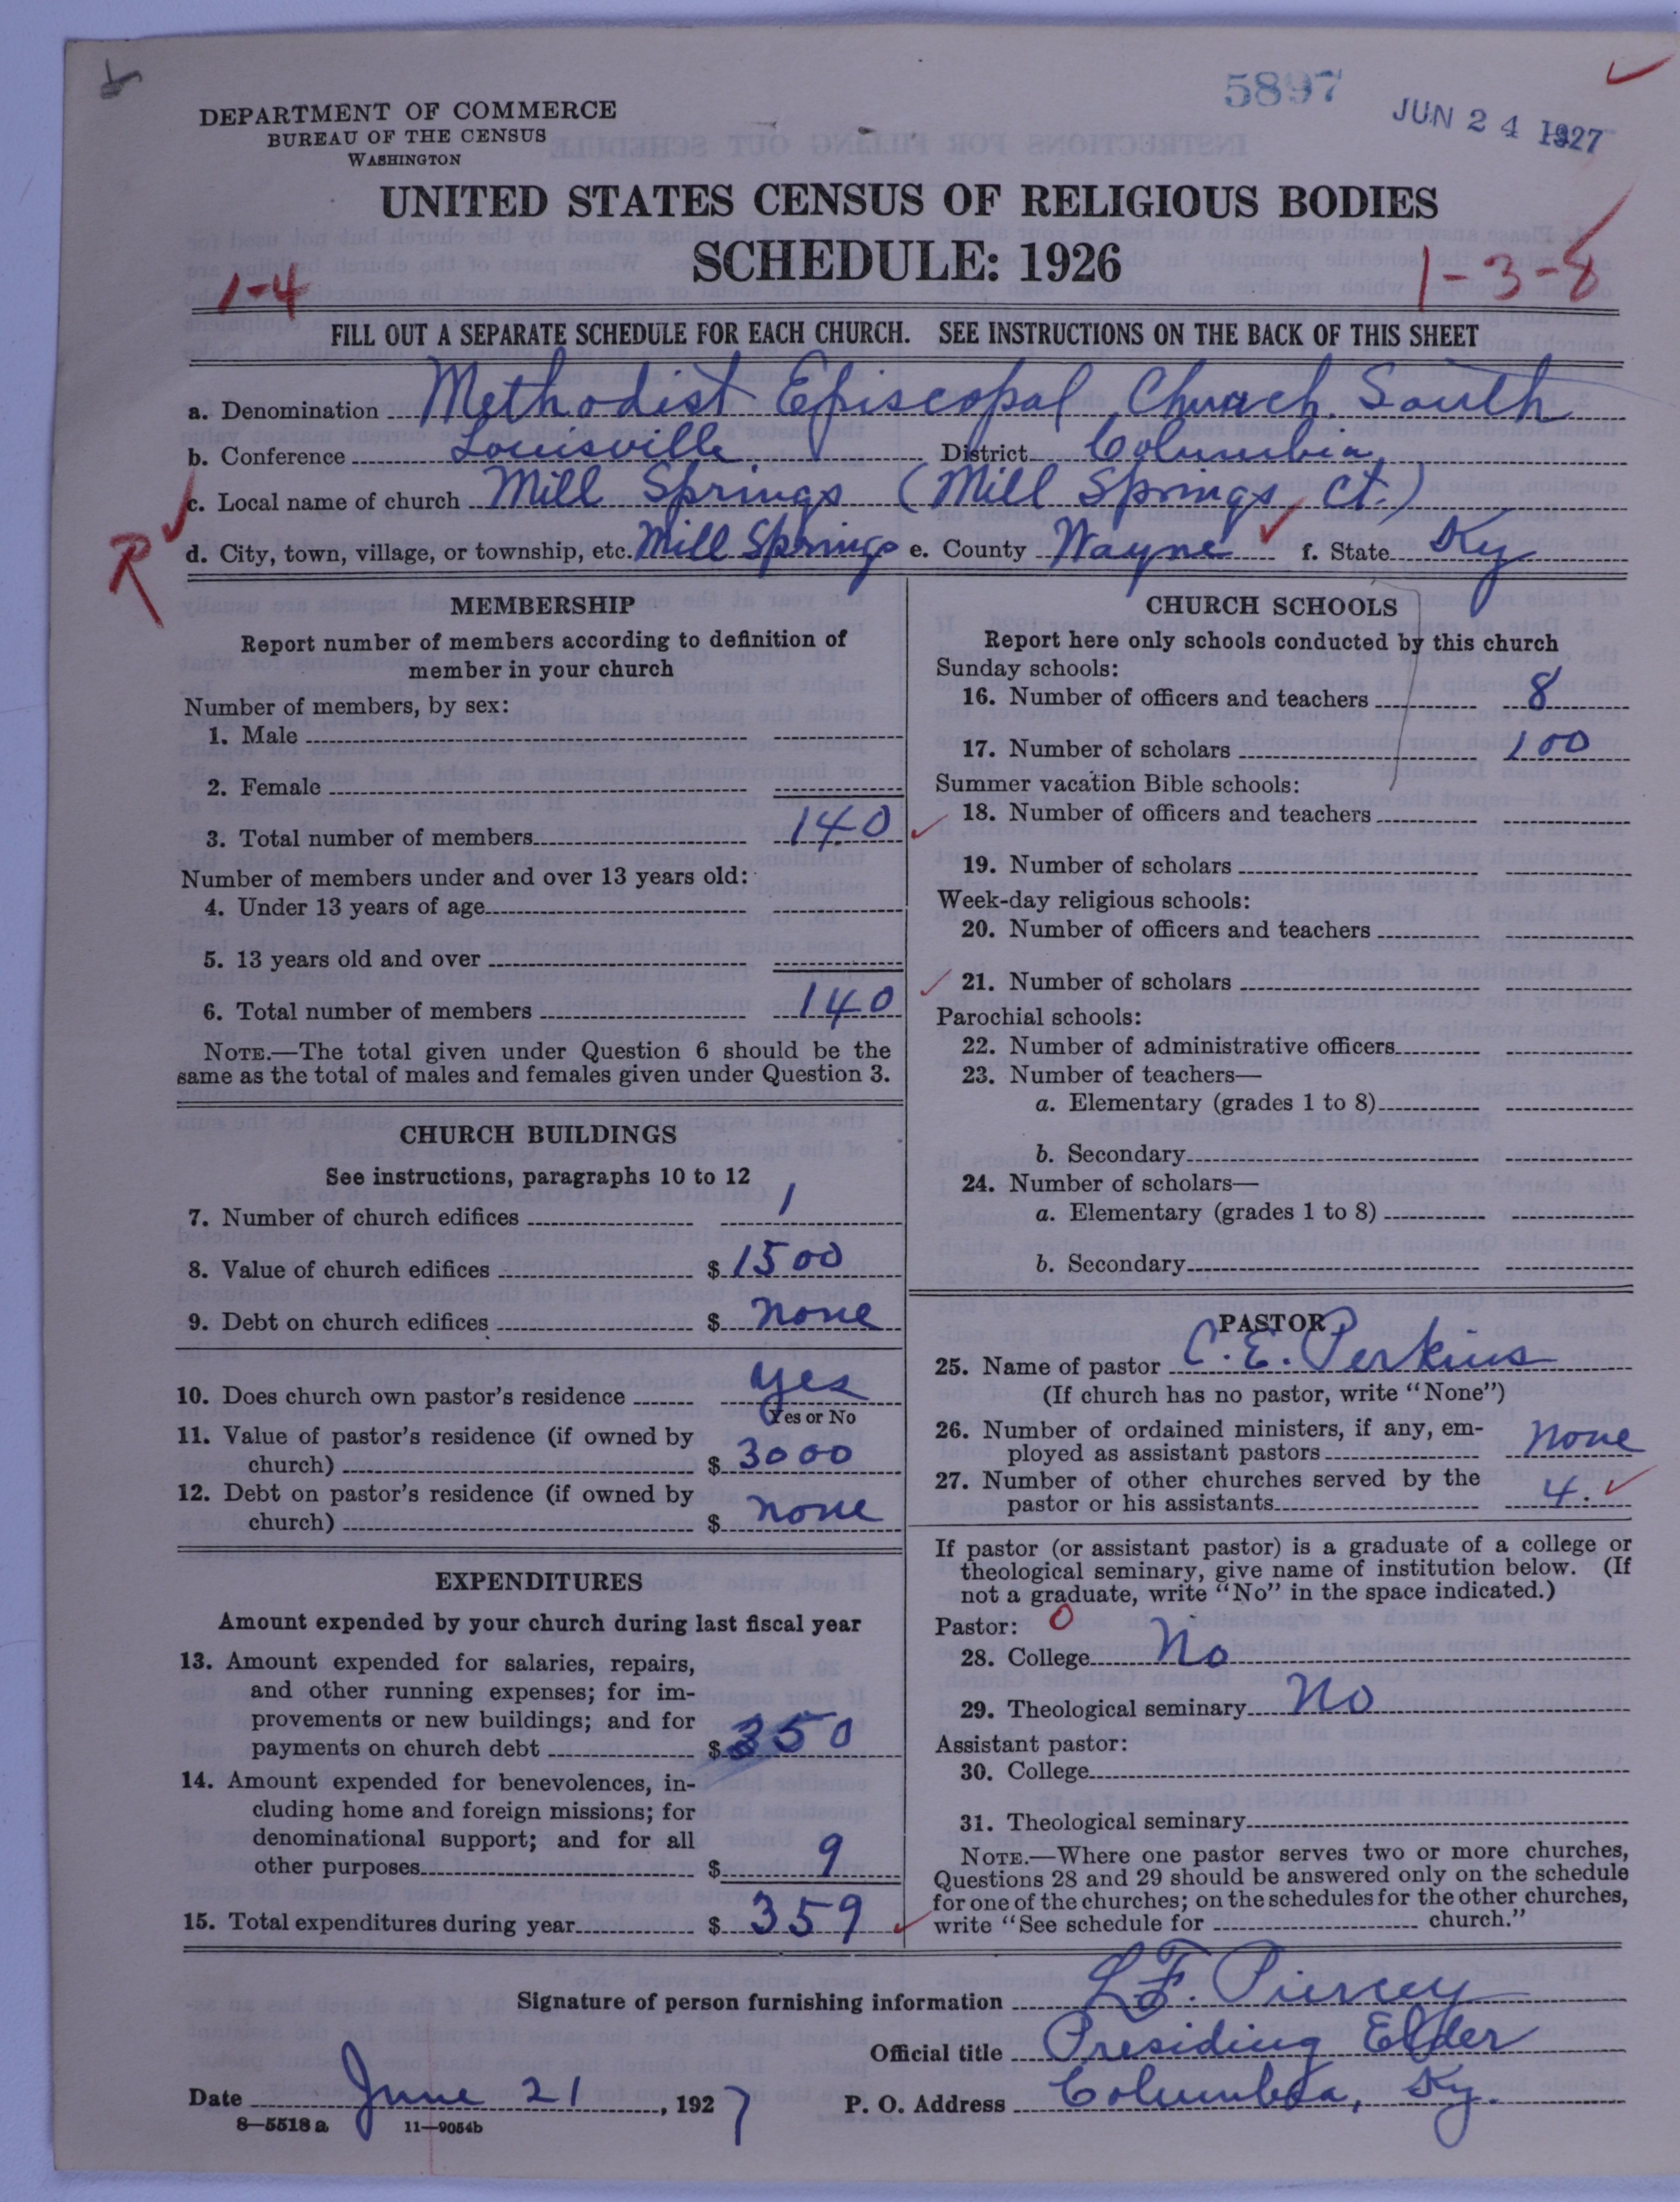 5897
JUN 24 1927
DEPARTMENT OF COMMERCE
BUREAU OF THE CENSUS
WASHINGTON
UNITED STATES CENSUS OF RELIGIOUS BODIES
SCHEDULE: 1926
1-4
1-3-8
FILL OUT A SEPARATE SCHEDULE FOR EACH CHURCH. SEE INSTRUCTIONS ON THE BACK OF THIS SHEET
a. Denomination Methodist Episcopal Church South
b. Conference Louisville District Columbia
c. Local name of church Mill Springs (Mill Springs Ct.)
R
d. City, town, village, or township, etc. Mill Springs e. County Wayne f. State Ky
MEMBERSHIP
Report number of members according to definition of
member in your church
Number of members, by sex:
1. Male
2. Female
3. Total number of members 140
Number of members under and over 13 years old:
4. Under 13 years of age
5. 13 years old and over
6. Total number of members 140
NOTE.—The total given under Question 6 should be the
same as the total of males and females given under Question 3.
CHURCH BUILDINGS
See instructions, paragraphs 10 to 12
7. Number of church edifices 1
8. Value of church edifices $ 1500
9. Debt on church edifices $ none
10. Does church own pastor's residence yes
Yes or No
11. Value of pastor's residence (if owned by
church) $ 3000
12. Debt on pastor's residence (if owned by
church) $ none
EXPENDITURES
Amount expended by your church during last fiscal year
13. Amount expended for salaries, repairs,
and other running expenses; for im-
provements or new buildings; and for
payments on church debt $ 350
14. Amount expended for benevolences, in-
cluding home and foreign missions; for
denominational support; and for all
other purposes $ 9
15. Total expenditures during year $ 359
CHURCH SCHOOLS
Report here only schools conducted by this church
Sunday schools:
16. Number of officers and teachers 8
17. Number of scholars 100
Summer vacation Bible schools:
18. Number of officers and teachers
19. Number of scholars
Week-day religious schools:
20. Number of officers and teachers
21. Number of scholars
Parochial schools:
22. Number of administrative officers
23. Number of teachers—
a. Elementary (grades 1 to 8)
b. Secondary
24. Number of scholars—
a. Elementary (grades 1 to 8)
b. Secondary
PASTOR
25. Name of pastor C. E. Perkins
(If church has no pastor, write "None")
26. Number of ordained ministers, if any, em-
ployed as assistant pastors none
27. Number of other churches served by the
pastor or his assistants 4.
If pastor (or assistant pastor) is a graduate of a college or
theological seminary, give name of institution below. (If
not a graduate, write "No" in the space indicated.)
Pastor: 0
28. College No
29. Theological seminary No
Assistant pastor:
30. College
31. Theological seminary
NOTE.—Where one pastor serves two or more churches,
Questions 28 and 29 should be answered only on the schedule
for one of the churches; on the schedules for the other churches,
write "See schedule for church."
Signature of person furnishing information L. F. Piercey
Official title Presiding Elder
Date June 21, 1927 P. O. Address Columbia, Ky.
8—5518 a 11—9054b